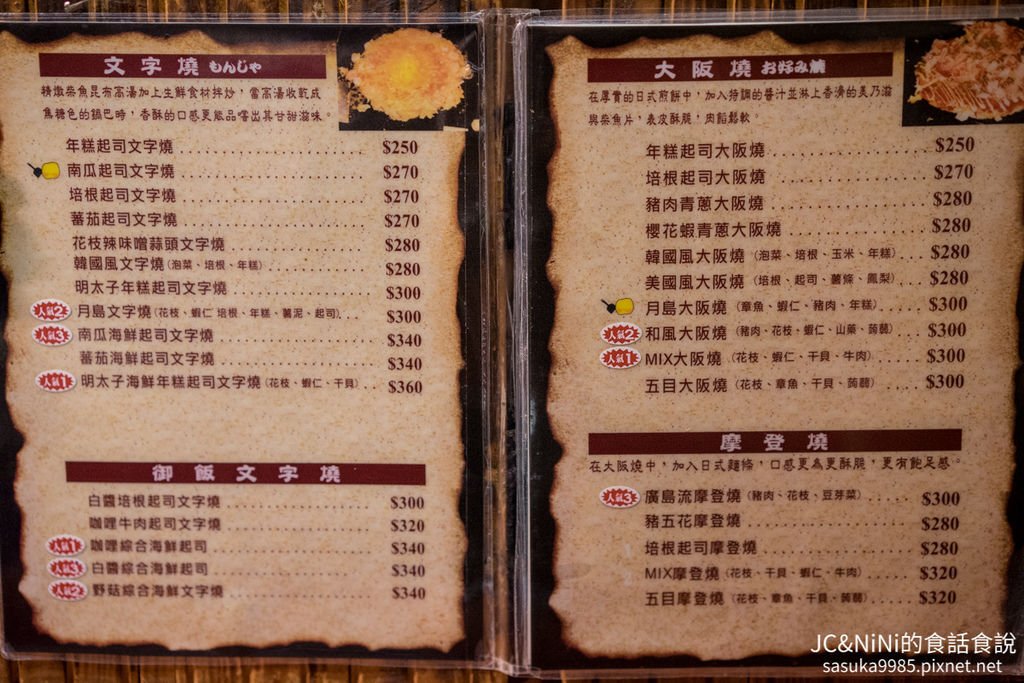 文字燒 もんじゃ
精燉柴魚昆布高湯加上生鮮食材拌炒，當高湯收乾成
焦糖色的鍋巴時，香酥的口感更能品嚐出其甘甜滋味。
年糕起司文字燒 $250
南瓜起司文字燒 $270
培根起司文字燒 $270
蕃茄起司文字燒 $270
花枝辣味噌蒜頭文字燒 $280
韓國風文字燒(泡菜、培根、年糕) $280
明太子年糕起司文字燒 $300
人氣2 月島文字燒(花枝、蝦仁 培根、年糕、薯泥、起司) $300
人氣3 南瓜海鮮起司文字燒 $340
蕃茄海鮮起司文字燒 $340
人氣1 明太子海鮮年糕起司文字燒(花枝、蝦仁、干貝) $360
御飯文字燒
白醬培根起司文字燒 $300
咖哩牛肉起司文字燒 $320
人氣1 咖哩綜合海鮮起司 $340
人氣3 白醬綜合海鮮起司 $340
人氣2 野菇綜合海鮮文字燒 $340
大阪燒 お好み燒
在厚實的日式煎餅中，加入特調的醬汁並淋上香濃的美乃滋
與柴魚片，表皮酥脆，肉餡鬆軟。
年糕起司大阪燒 $250
培根起司大阪燒 $270
豬肉青蔥大阪燒 $280
櫻花蝦青蔥大阪燒 $280
韓國風大阪燒(泡菜、培根、玉米、年糕) $280
美國風大阪燒(培根、起司、薯條、鳳梨) $280
月島大阪燒(章魚、蝦仁、豬肉、年糕) $300
人氣2 和風大阪燒(豬肉、花枝、蝦仁、山藥、蒟蒻) $300
人氣1 MIX大阪燒(花枝、蝦仁、干貝、牛肉) $300
五目大阪燒(花枝、章魚、干貝、蒟蒻) $300
摩登燒
在大阪燒中，加入日式麵條，口感更為更酥脆，更有飽足感。
人氣3 廣島流摩登燒(豬肉、花枝、豆芽菜) $300
豬五花摩登燒 $280
培根起司摩登燒 $280
MIX摩登燒(花枝、干貝、蝦仁、牛肉) $320
五目摩登燒(花枝、章魚、干貝、蒟蒻) $320
JC&NiNi的食話食說
sasuka9985.pixnet.net